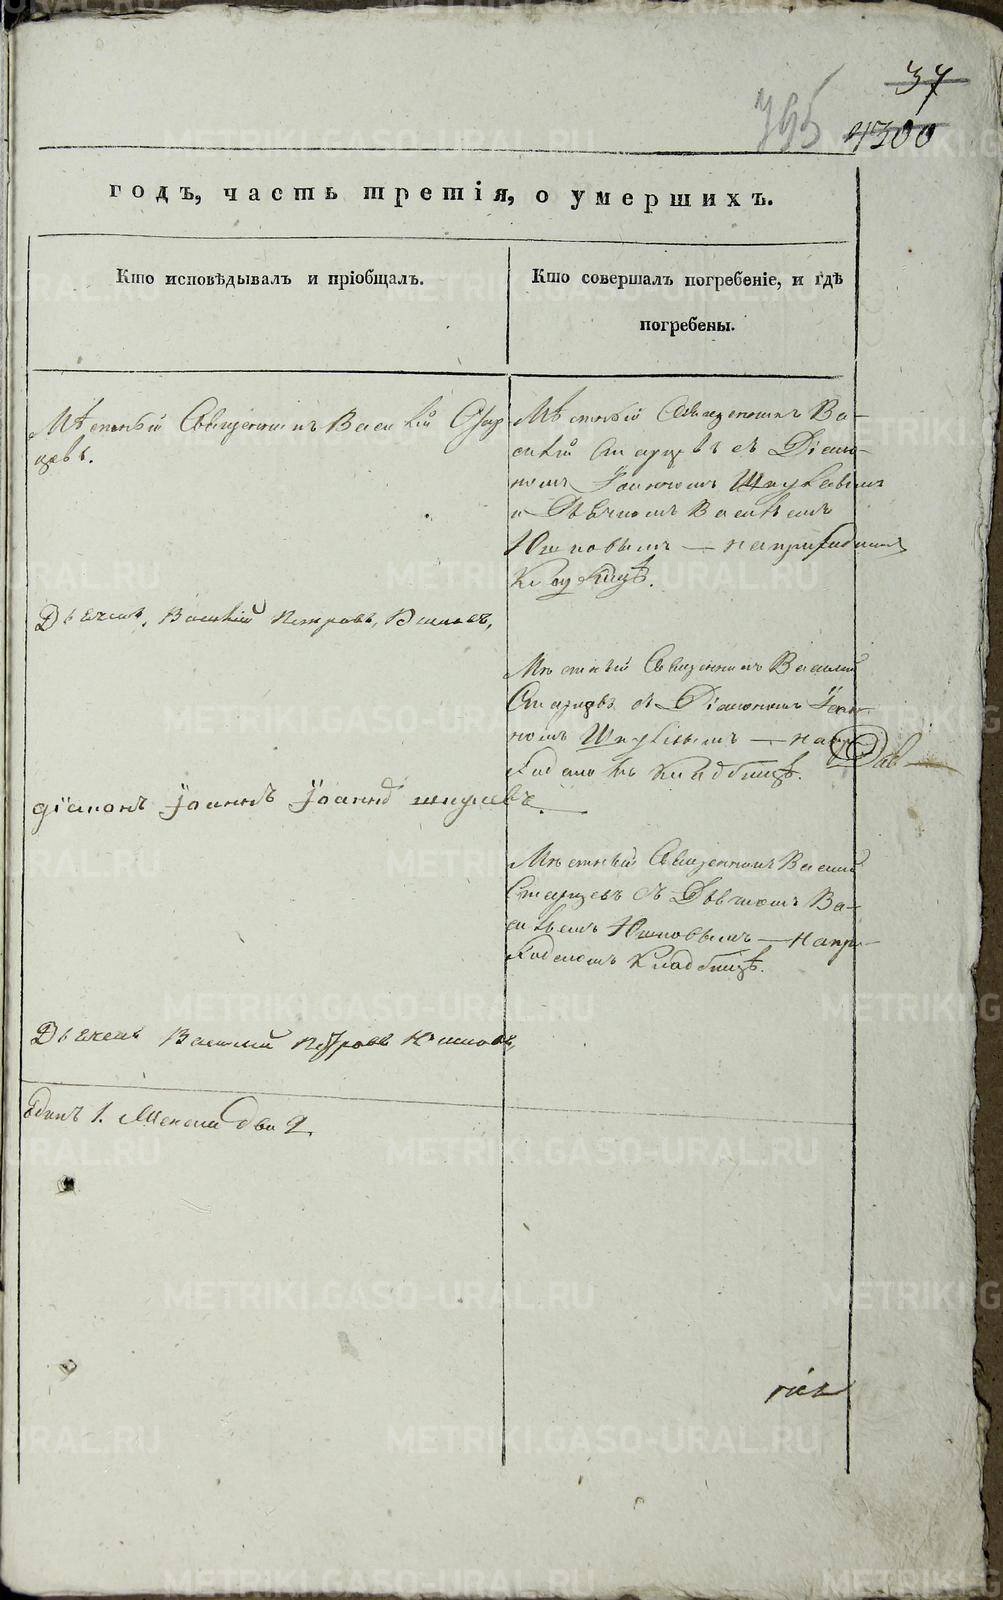 37
395 4300
годъ, часть третія, о умершихъ.
Кто исповѣдывалъ и пріобщалъ.
Кто совершалъ погребеніе, и гдѣ
погребены.
Мѣстный Священникъ Василій Стар
цевъ.
Мѣстный Священникъ Ва-
силій Старцевъ съ Діако-
номъ Іоанномъ
и Дьячкомъ Васильемъ
на приходскомъ
Кладбищѣ.
Дьячекъ, Василій Петровъ,
Мѣстный Священникъ Василій
Старцевъ съ Діакономъ Іоан-
номъ на при-
ходскомъ Кладбищѣ.
діаконъ Іоаннъ Іоанновъ
Мѣстный Священникъ Василій
Старцевъ съ Дьячкомъ Ва-
сильемъ на при-
ходскомъ Кладбищѣ.
Дьячекъ Василій Петровъ
Единъ 1. Женска два 2.
METRIKI.GASO-URAL.RU